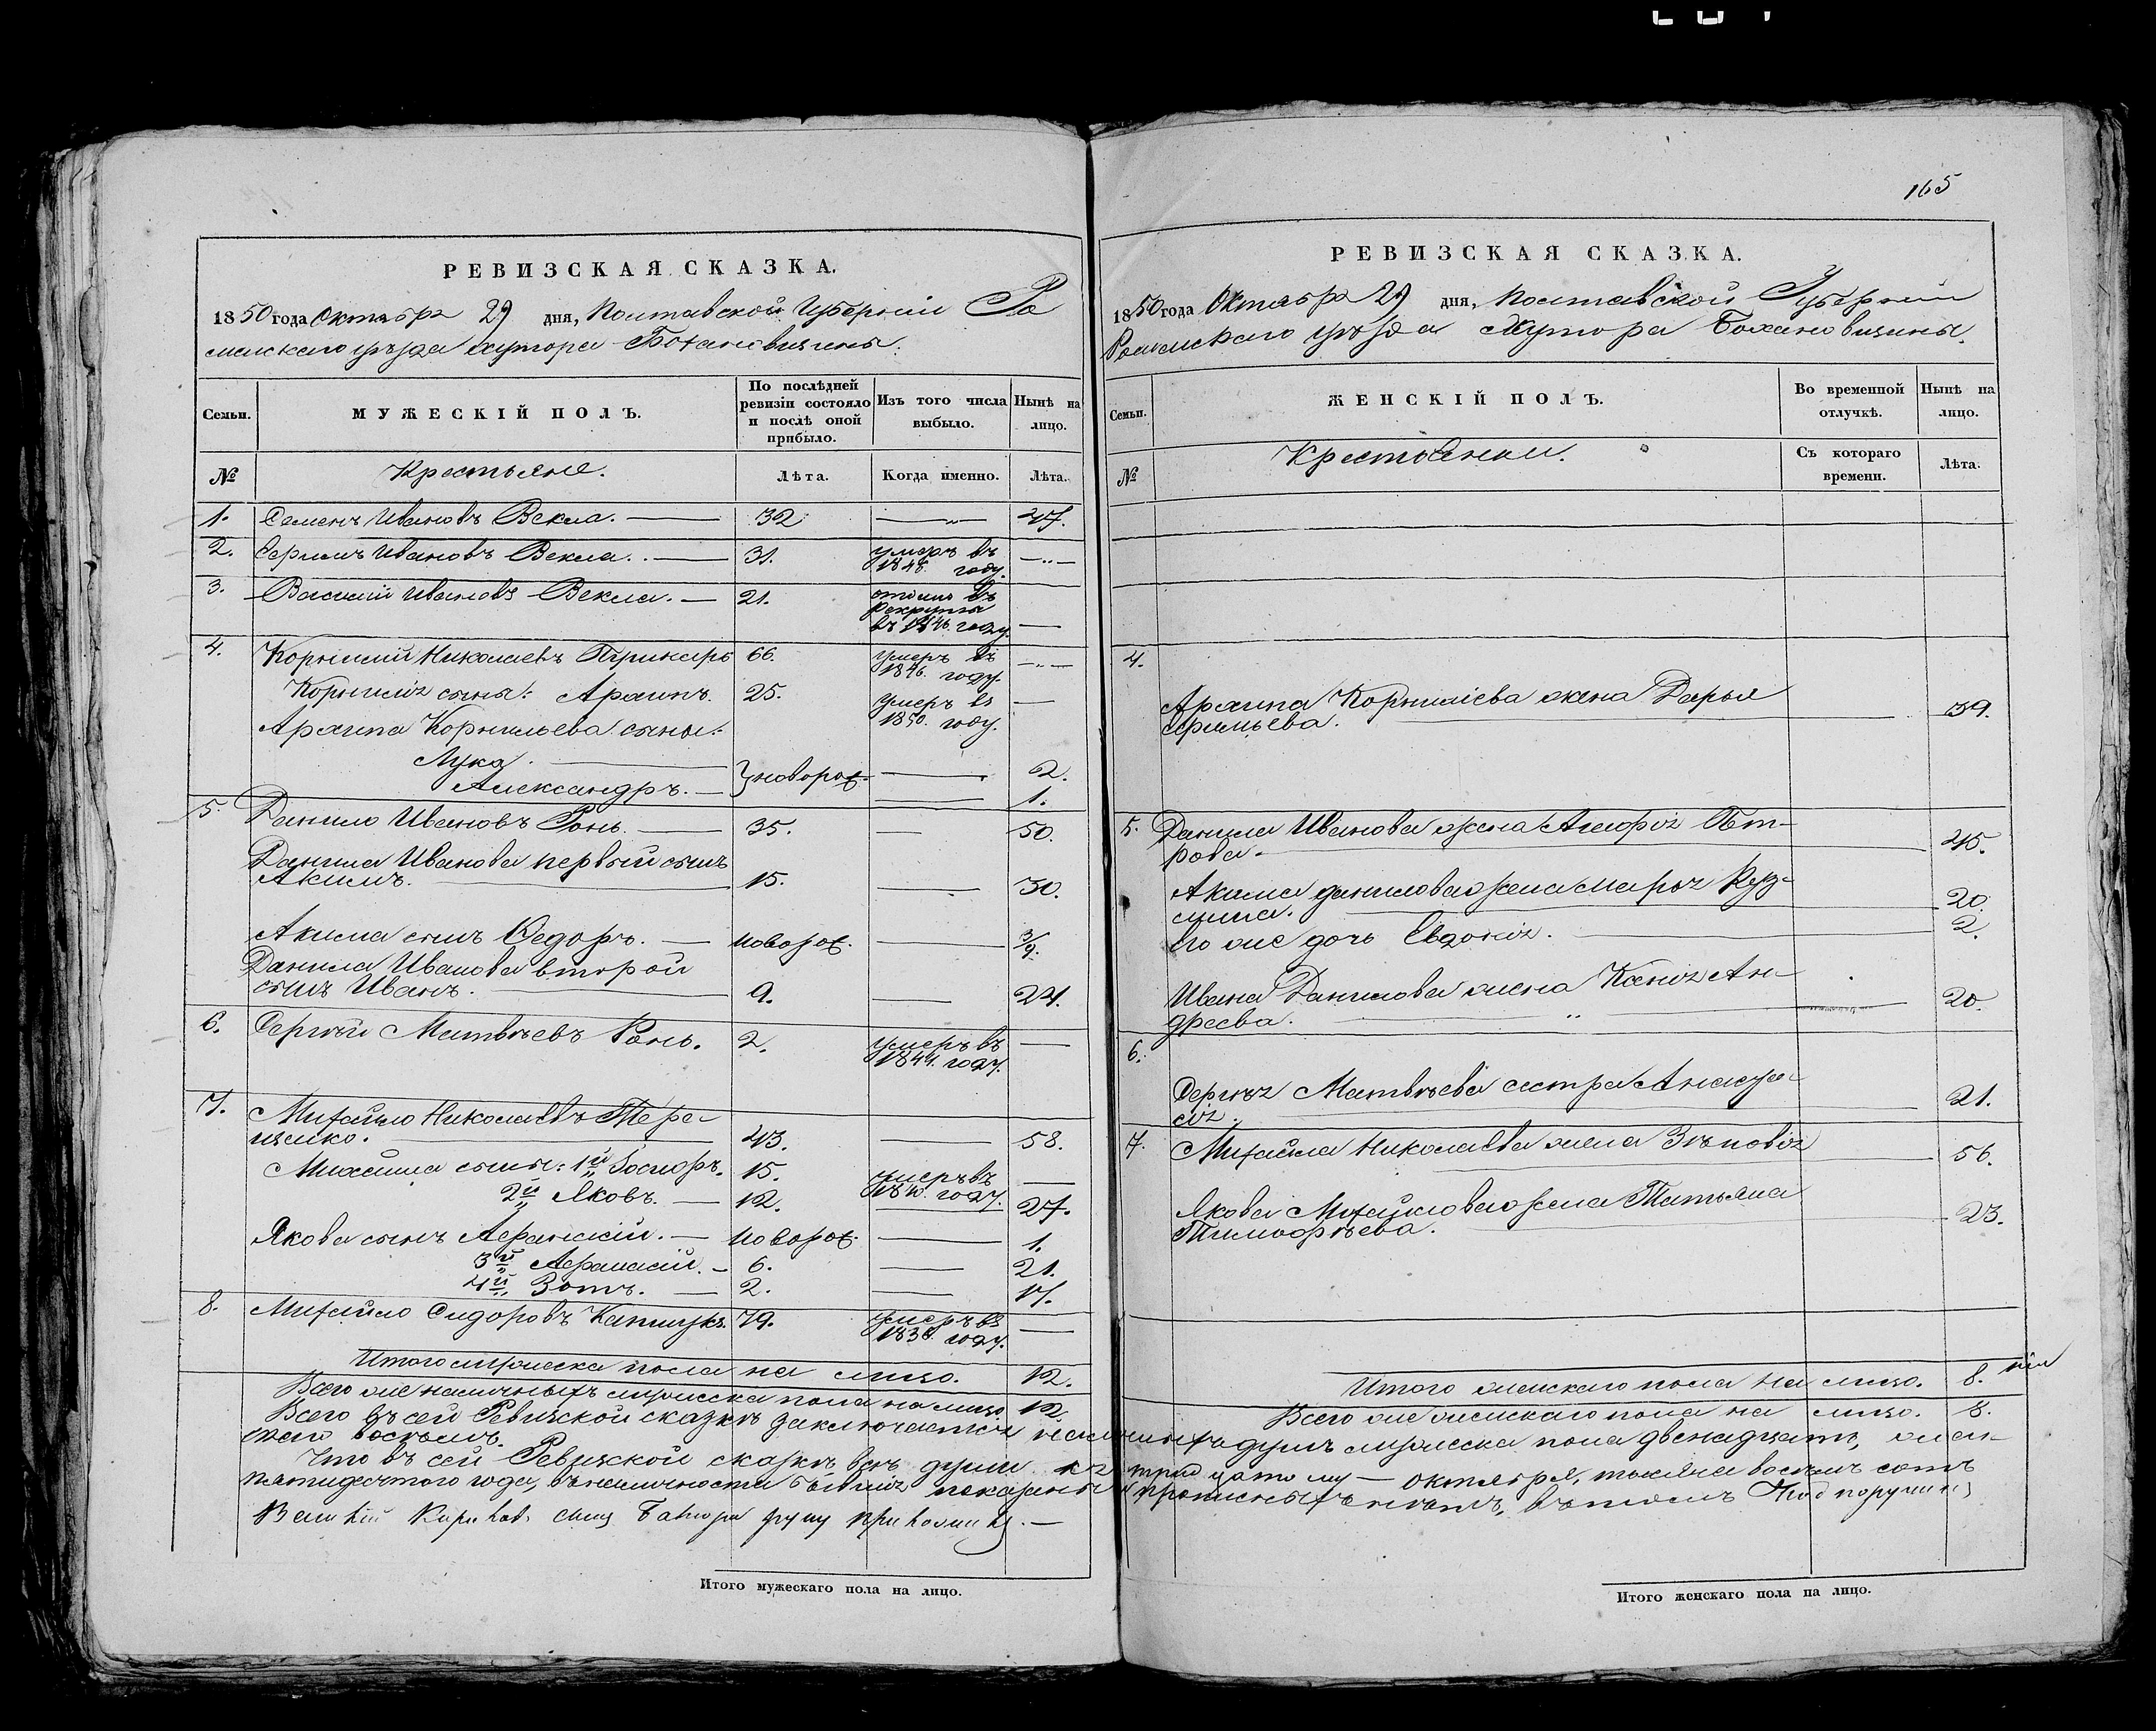 165
РЕВИЗСКАЯ СКАЗКА.
1850 года Октября 29 дня, Полтавской Губерніи Ро
менскаго уѣзда хутора Бохановщины.
Семьи.
МУЖЕСКІЙ ПОЛЪ.
По послѣдней ревизіи состояло и послѣ оной прибыло.
Изъ того числа выбыло.
Нынѣ на лицо.
№ Крестьяне. Лѣта. Когда именно. Лѣта.
1. Семенъ Ивановъ Векла. — 32 —„— 47.
2. Ивановъ Векла. — 31. умеръ въ 1848. году. —„—
3. Василій Ивановъ Векла. — 21. отданъ въ рекруты въ 1846. году. —
4. Корнилій Николаевъ 66. умеръ въ 1846. году. —„—
Корнилія сынъ: Архипъ. 25. умеръ въ 1850. году. —
Архипа Корнильева сыны:
Лука. — новорож. — 2.
Александръ. — 1.
5. Данило Ивановъ Ронь. — 35. — 50.
Данила Иванова первый сынъ
Акимъ. — 15. — 30.
Акима сынъ Ѳедоръ. — новорож. — 3/9.
Данила Иванова второй
сынъ Иванъ. — 9. — 24.
6. Сергѣй Матвѣевъ Ронь. 2. умеръ въ 1844. году. —
7. Михайло Николаевъ Тере-
щенко. — 43. — 58.
Михаила сыны: 1й 15. умеръ въ 1840. году. —
2й Яковъ. — 12. — 27.
Якова сынъ Афанасій. — новорож. — 1.
3й Афанасій. — 6. — 21.
4й Зотъ. — 2. — 17.
8. Михайло Сидоровъ 79. умеръ въ 1838. году. —
Итого мужеска пола на лицо. 12.
Всего же наличныхъ мужеска пола на лицо 12.
РЕВИЗСКАЯ СКАЗКА.
1850 года Октября 29 дня, Полтавской Губерніи
Роменскаго уѣзда Хутора Бохановщины.
Семьи.
ЖЕНСКІЙ ПОЛЪ.
Во временной отлучкѣ.
Нынѣ на лицо.
№ Крестьянки. Съ котораго времени. Лѣта.
4.
Архипа Корниліева жена Дарья
— 39.
5. Данила Иванова жена Пет-
рова. — 45.
Акима Данилова жена Марья Куз-
мина. — 20.
Его же дочь Евдокія. — 2.
Ивана Данилова жена Ксенія Ан-
дреева. — 20.
6.
Сергѣя Матвѣева сестра Анаста-
сія. — 21.
7. Михайла Николаева жена Зѣновія
— 56.
Якова Михайлова жена Татьяна
Тимофѣева. — 23.
Итого женскаго пола на лицо. 8.
Всего же женскаго пола на лицо. 8.
Всего въ сей Ревизской сказкѣ заключается наличныхъ душъ мужеска пола двенадцать, жен-
скаго восемь.
Что въ сей Ревизской сказкѣ всѣ души къ тридцатому — октября, тысяча восемь сотъ
пятидесятого года, въ наличности бывшія показаны и прописныхъ нѣтъ, въ томъ Подпоручикъ
сынъ руку приложилъ. —
Итого мужескаго пола на лицо.
Итого женскаго пола на лицо.